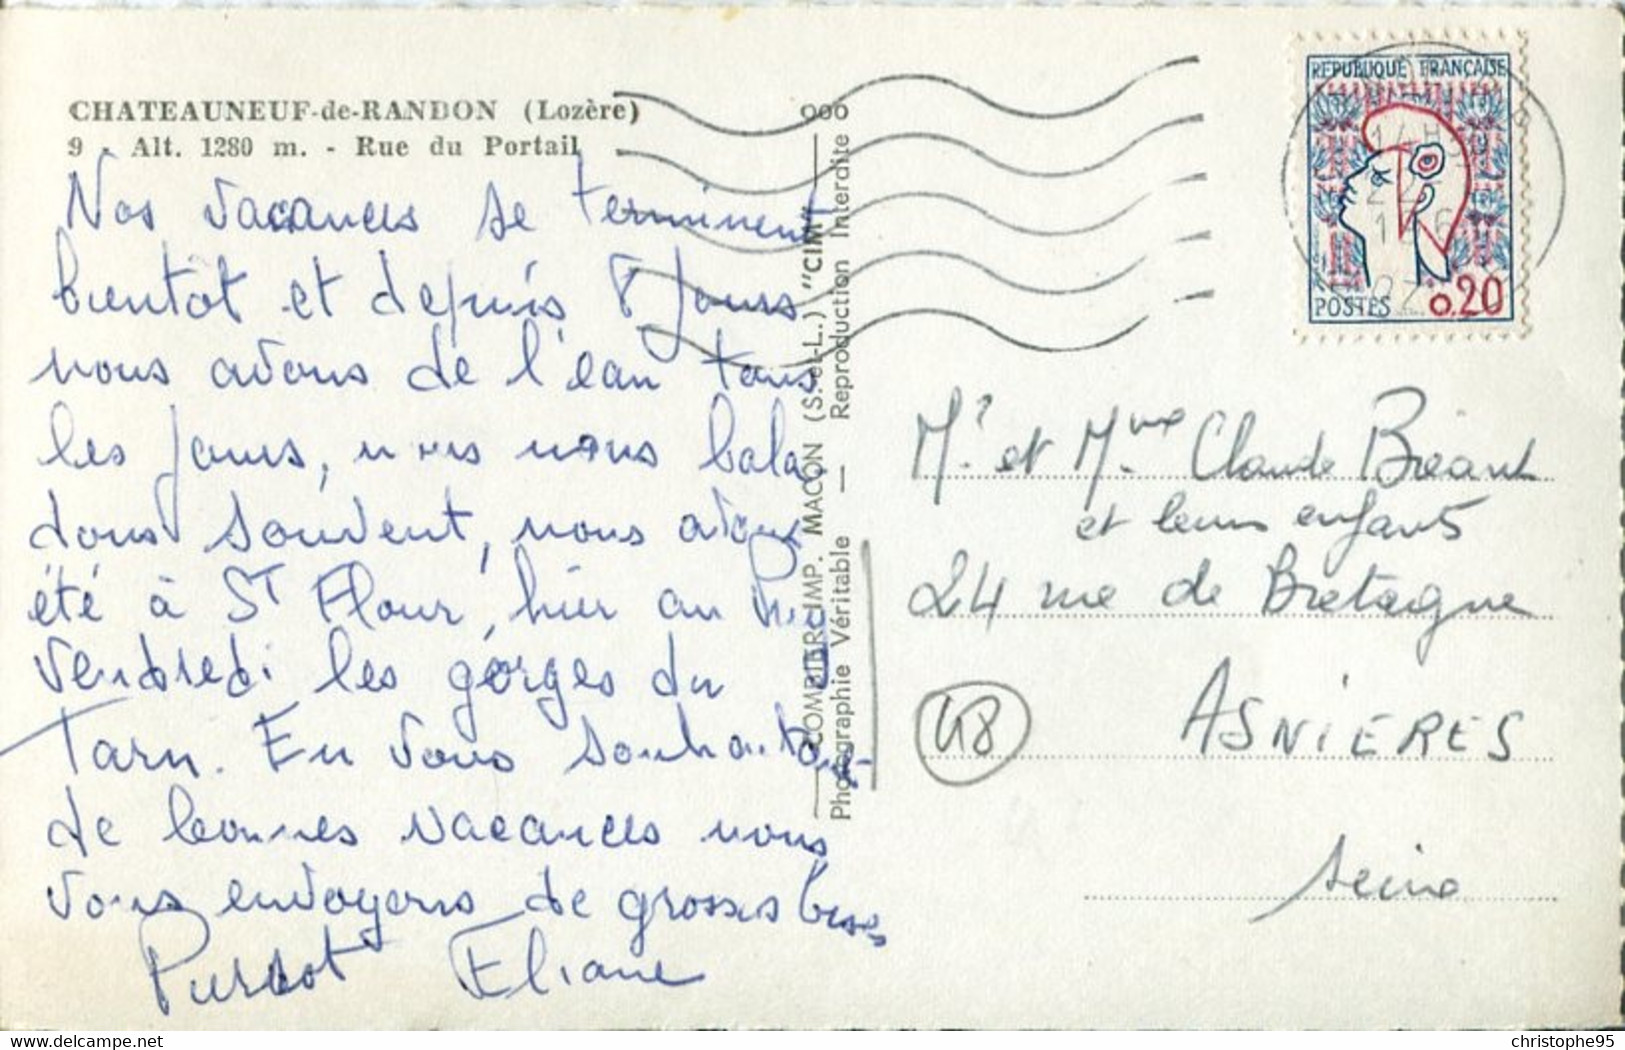 CHATEAUNEUF-de-RANDON (Lozère)
9 - Alt. 1280 m. - Rue du Portail
Nos vacances se terminent
bientôt et depuis 8 jours
nous avons de l'eau tous
les jours, nous nous bala-
dons souvent, nous avons
été à St Flour, hier au Puy
Vendredi les gorges du
Tarn. En vous souhaitant
de bonnes vacances nous
vous envoyons de grosses bises
Eliane
COMBIER IMP. MACON (S.-et-L.) "CIM"
Photographie Véritable — Reproduction Interdite
REPUBLIQUE FRANÇAISE
POSTES 0.20
Mr et Mme Claude Bréant
et leurs enfants
24 rue de Bretagne
ASNIERES
Seine
48
christophe95